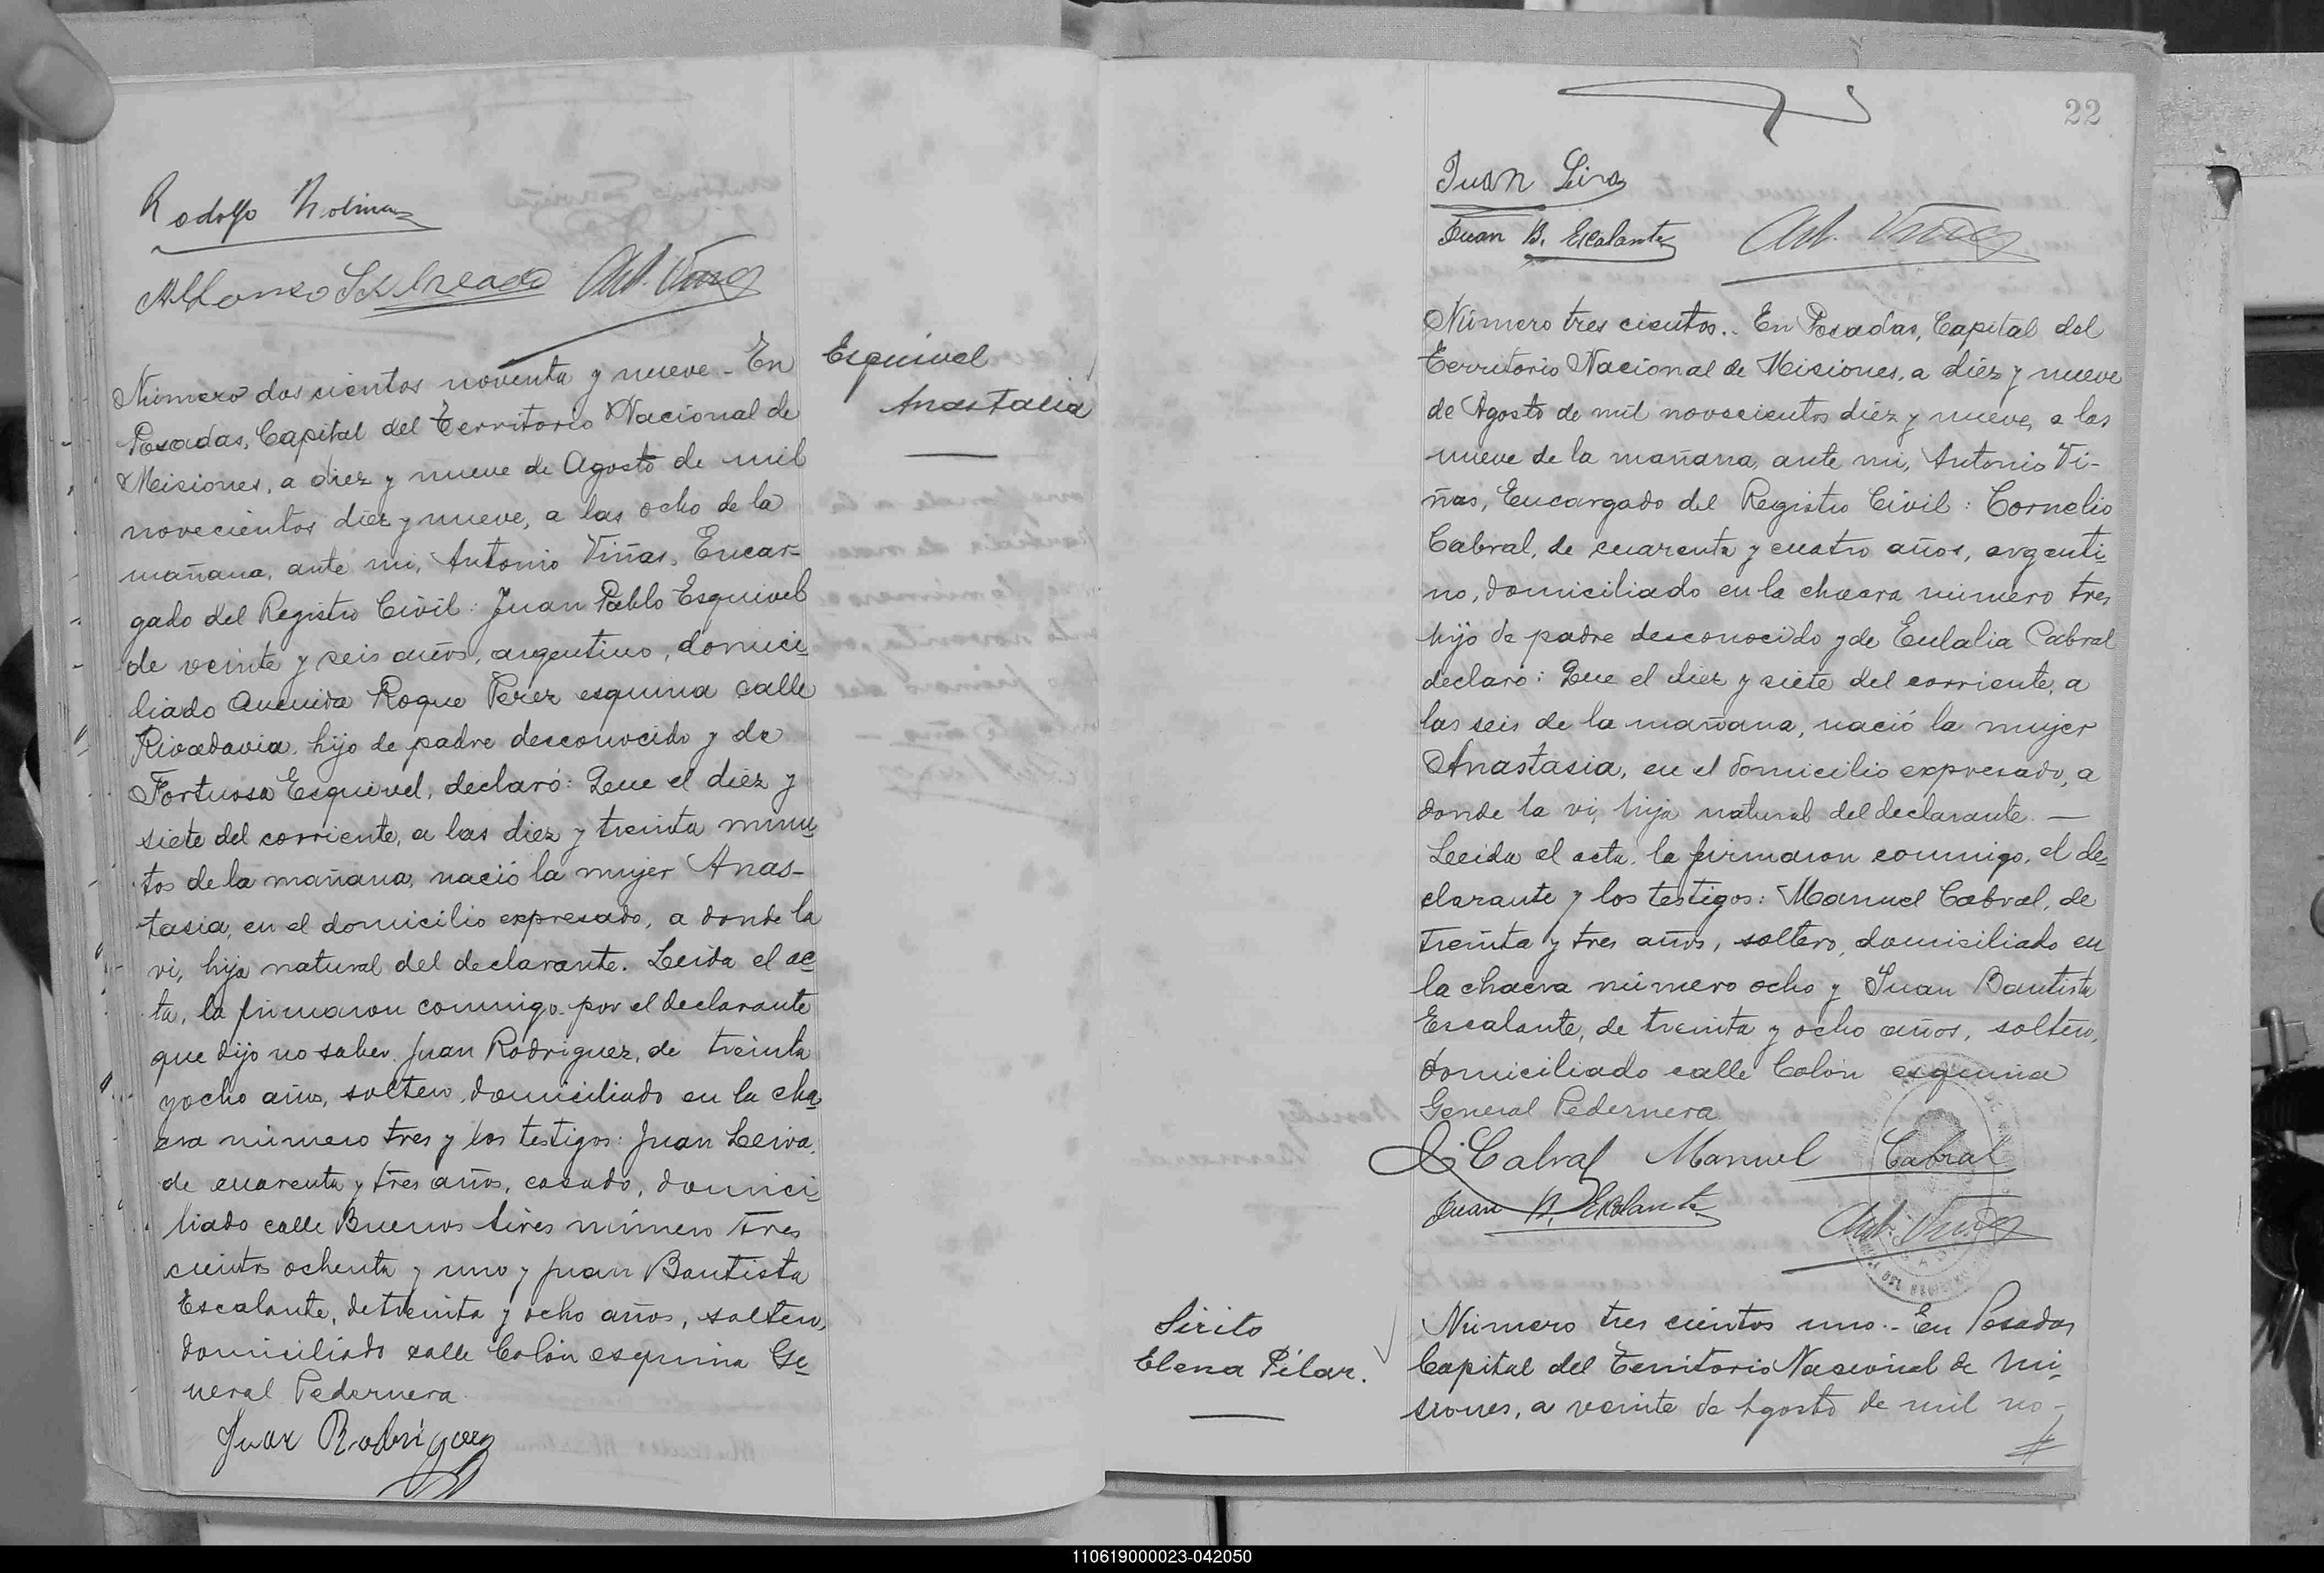 Rodolfo Molina
Número doscientos noventa y nueve. - En
Posadas, Capital del Territorio Nacional de
Misiones, a diez y nueve de Agosto de mil
novecientos diez y nueve, a las ocho de la
mañana, ante mi, Antonio Viñas, Encar-
gado del Registro Civil: Juan Pablo Esquivel
de veinte y seis años, argentino, domici-
liado Avenida Roque Perez esquina calle
Rivadavia, hijo de padre desconocido y de
Fortuosa Esquivel, declaró: Que el diez y
siete del corriente, a las diez y treinta minu-
tos de la mañana, nació la mujer Anas-
tasia, en el domicilio expresado, a donde la
vi, hija natural del declarante. Leida el ac-
ta, la firmaron conmigo por el declarante
que dijo no saber Juan Rodriguez, de treinta
y ocho años, soltero, domiciliado en la cha-
cra número tres y los testigos: Juan Leiva,
de cuarenta y tres años, casado, domici-
liado calle Buenos Aires número tres
cientos ochenta y uno y Juan Bautista
Escalante, de treinta y ocho años, soltero,
domiciliado calle Colón esquina Ge-
neral Pedernera
Juan Rodriguez
Esquivel
Anastacia
22
Juan
Juan B. Escalante
Ant. Viñas
Número tres cientos.. En Posadas, Capital del
Territorio Nacional de Misiones, a diez y nueve
de Agosto de mil novecientos diez y nueve, a las
nueve de la mañana, ante mi, Antonio Vi-
ñas, Encargado del Registro Civil: Cornelio
Cabral, de cuarenta y cuatro años, argenti-
no, domiciliado en la chacra número tres
hijo de padre desconocido y de Eulalia Cabral
declaró: Que el diez y siete del corriente, a
las seis de la mañana, nació la mujer
Anastasia, en el domicilio expresado, a
donde la vi, hija natural del declarante. —
Leida el acta, la firmaron conmigo, el de-
clarante y los testigos: Manuel Cabral, de
treinta y tres años, soltero, domiciliado en
la chacra número ocho y Juan Bautista
Escalante, de treinta y ocho años, soltero,
domiciliado calle Colón esquina
General Pedernera
C. Cabral Manuel Cabral
Juan B. Escalante
Ant. Viñas
Sirito
Elena Pilar.
Número tres cientos uno.- En Posadas
Capital del Territorio Nacional de Mi-
siones, a veinte de Agosto de mil no-
110619000023-042050